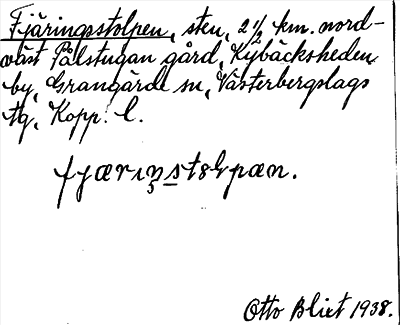 Fjäringsstolpen, sten, 2 1/2 km. nord-
väst Pålstugan gård, Kybäcksheden
by, Grangärde sn, Västerbergslags
tg, Kopp. l.
Otto Blixt 1938.